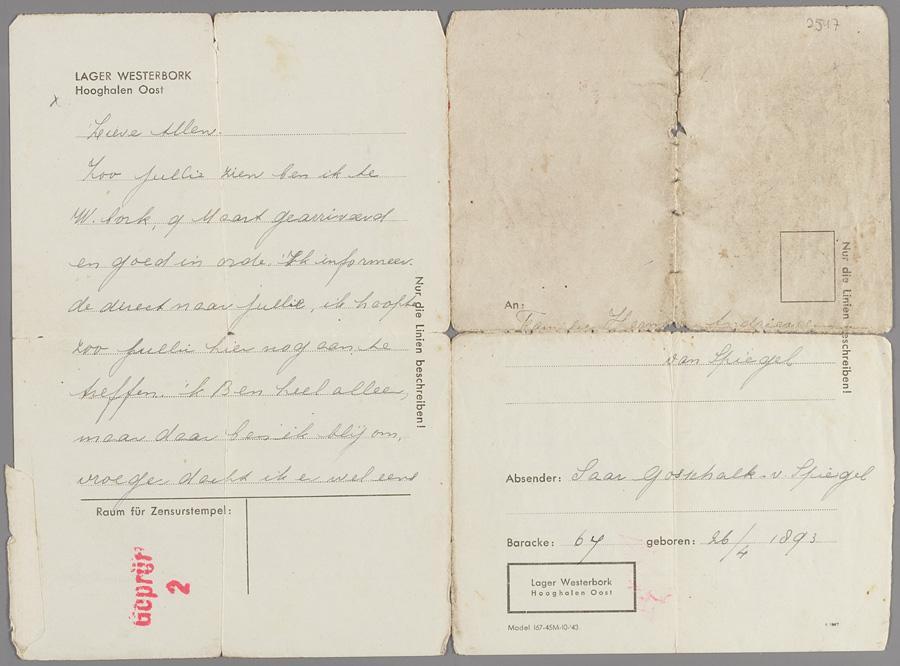 LAGER WESTERBORK
Hooghalen Oost
x
Lieve Allen.
Zoo jullie zien ben ik te
W. bork, 9 Maart gearriveerd
en goed in orde. Ik informeer
de direct naar jullie, ik hoopte
zoo jullie hier nog aan te
treffen. ik Ben heel alleen,
maar daar ben ik blij om,
vroeger dacht ik er wel eens
Raum für Zensurstempel:
Geprüft
2
Nur die Linien beschreiben!
2517
Nur die Linien beschreiben!
An:
Herman
van Spiegel
Absender: Saar Goschalk-v. Spiegel
Baracke: 67 geboren: 26/4 1893
Lager Westerbork
Hooghalen Oost
Model 167-45M-10-'43